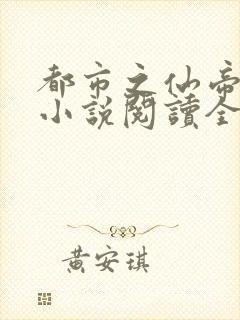 都市之仙帝
小說閱讀全
黃安琪